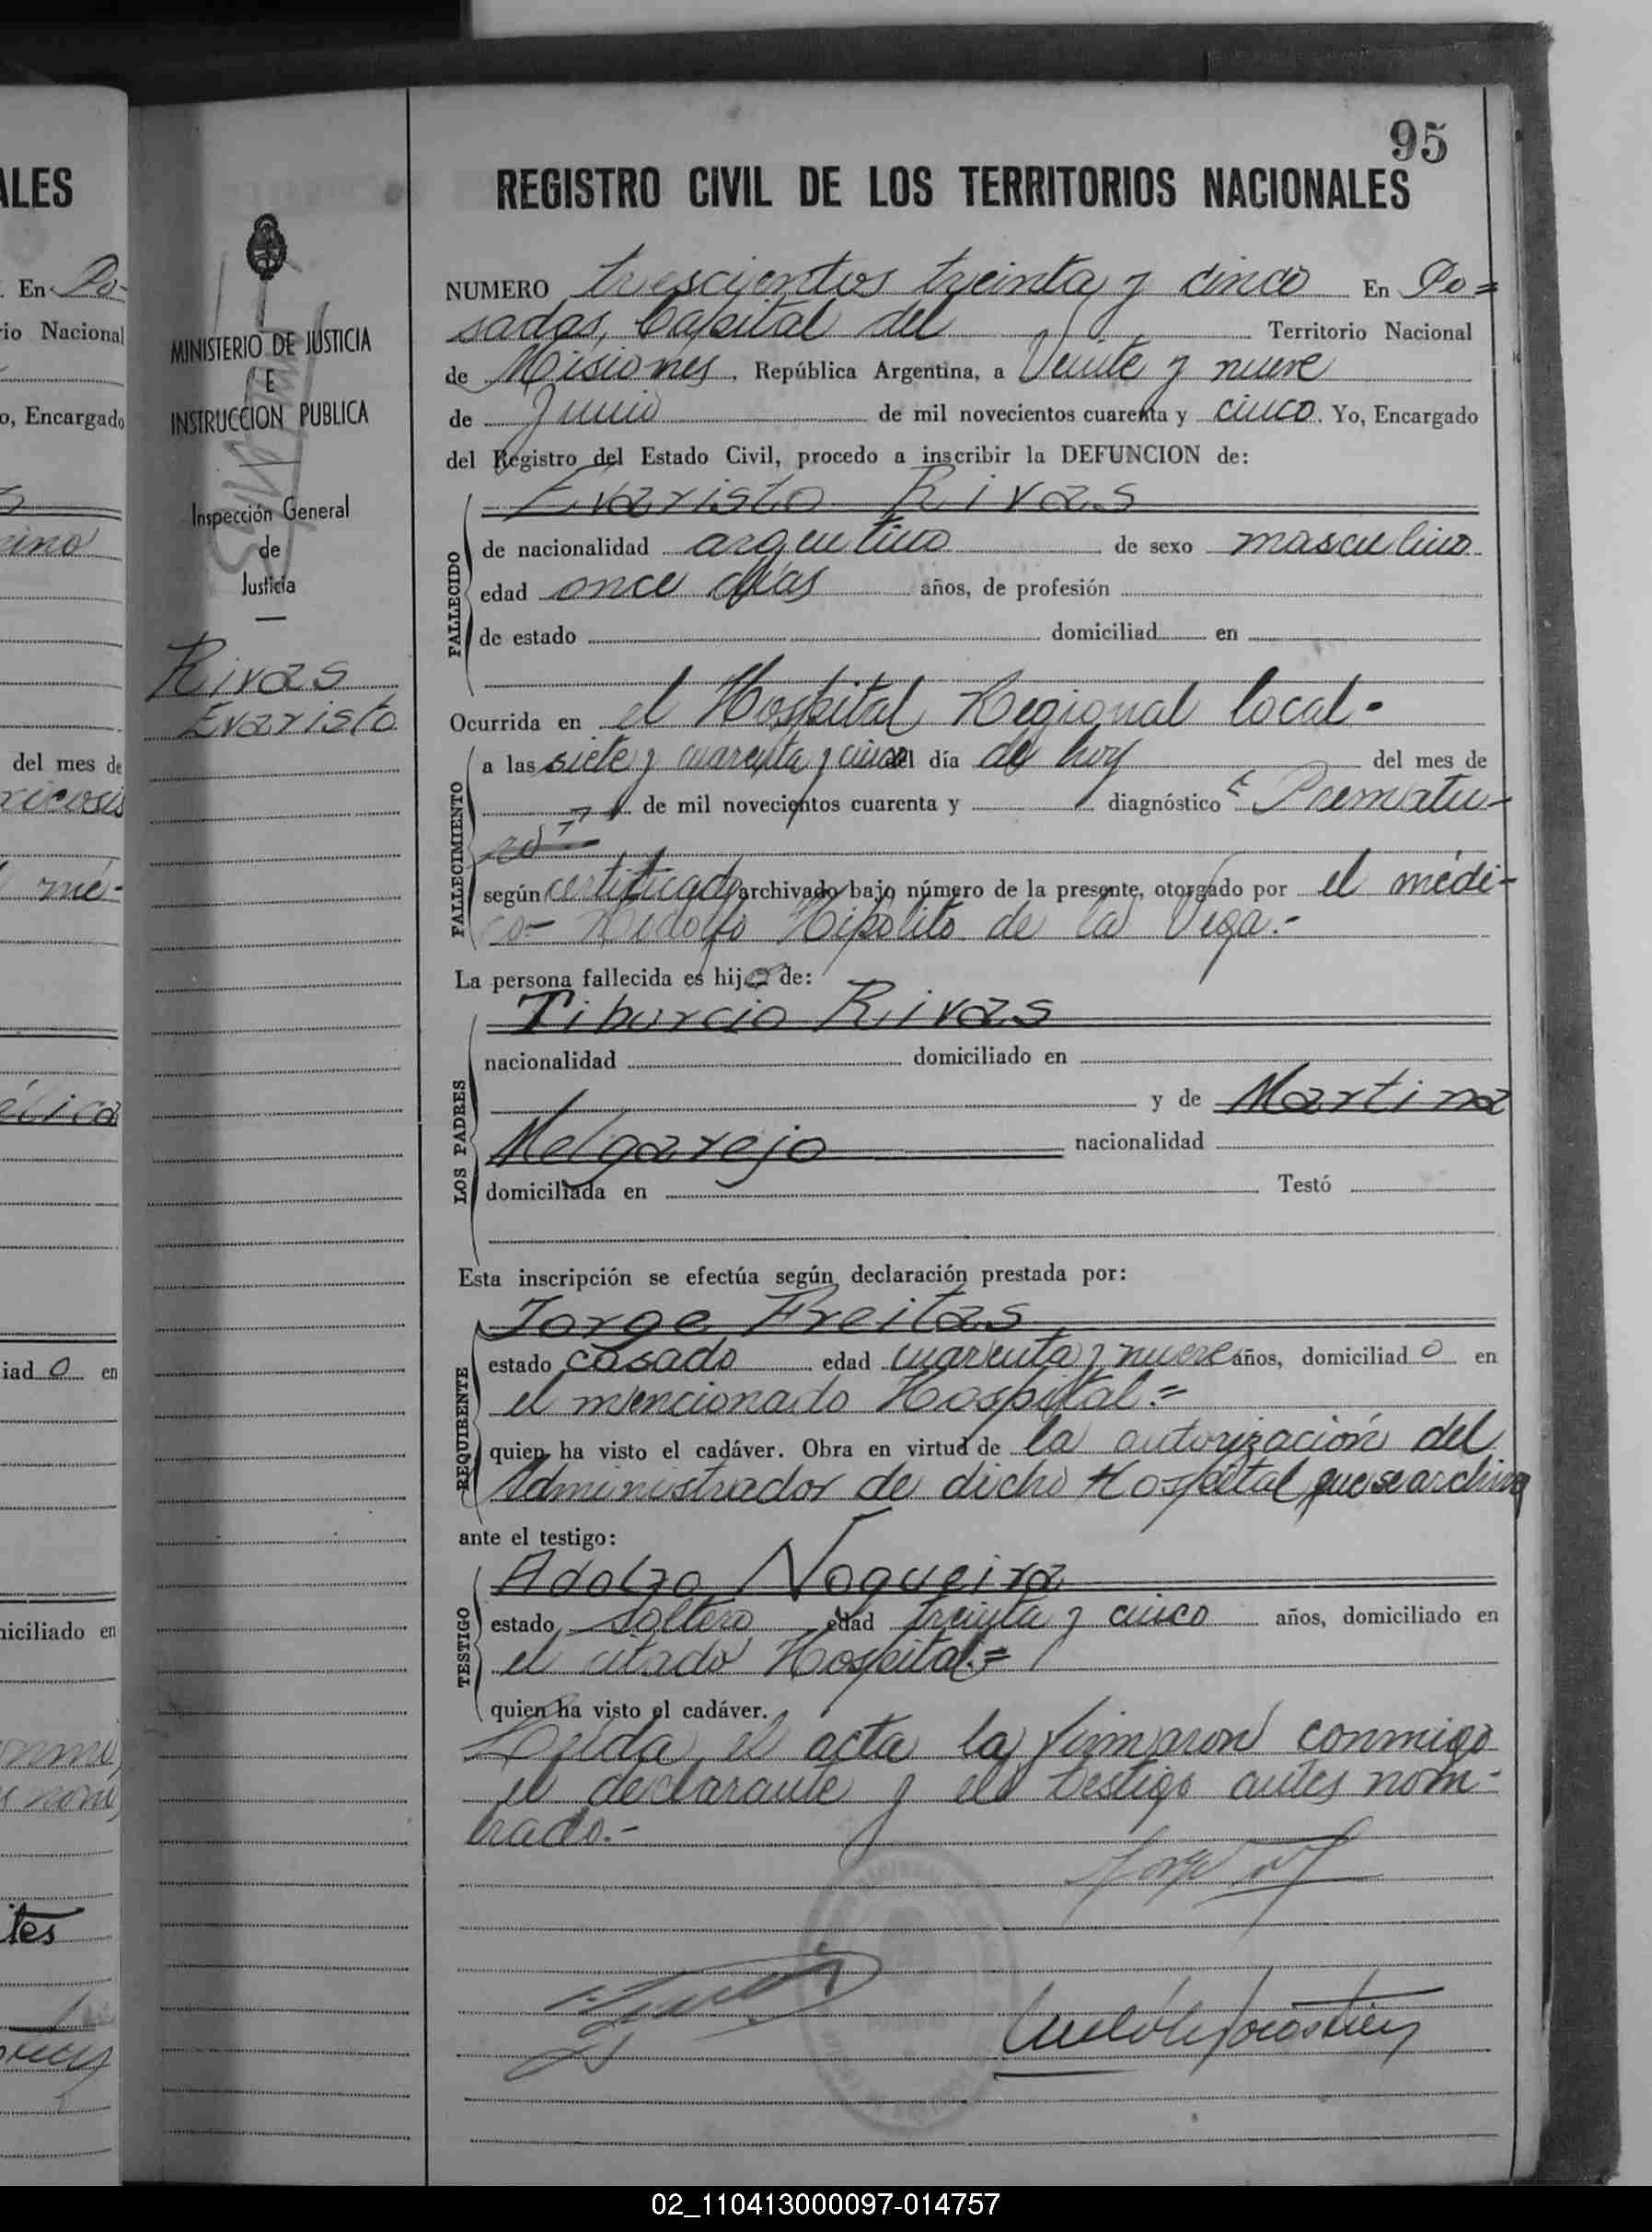 95
REGISTRO CIVIL DE LOS TERRITORIOS NACIONALES
NUMERO trescientos treinta y cinco En Po=
sadas, Capital del Territorio Nacional
de Misiones, República Argentina, a Veinte y nueve
de Junio de mil novecientos cuarenta y cinco. Yo, Encargado
del Registro del Estado Civil, procedo a inscribir la DEFUNCION de:
Evaristo Rivas
FALLECIDO
de nacionalidad argentino de sexo masculino
edad once días años, de profesión
de estado domiciliad en
Ocurrida en el Hospital Regional local.
FALLECIMIENTO
a las siete y cuarenta y cinco del día de hoy del mes de
de mil novecientos cuarenta y diagnóstico Prematu-
ro
según certificado archivado bajo número de la presente, otorgado por el médi-
co- Rodolfo Hipólito de la Vega.-
La persona fallecida es hijo de:
LOS PADRES
Tiburcio Rivas
nacionalidad domiciliado en
y de Martina
Melgarejo nacionalidad
domiciliada en Testó
Esta inscripción se efectúa según declaración prestada por:
REQUIRENTE
Jorge Freitas
estado casado edad cuarenta y nueve años, domiciliad o en
el mencionado Hospital.=
quien ha visto el cadáver. Obra en virtud de la autorización del
Administrador de dicho Hospital, que se archiva
ante el testigo:
TESTIGO
Adolfo Nogueira
estado soltero edad treinta y cinco años, domiciliado en
el citado Hospital.=
quien ha visto el cadáver.
Leída el acta la firmaron conmigo
el declarante y el testigo antes nom-
brado.-
MINISTERIO DE JUSTICIA
E
INSTRUCCION PUBLICA
Inspección General
de
Justicia
Rivas
Evaristo
ALES
En Po-
rio Nacional
o, Encargado
ino
del mes de
mé-
élica
iad o en
niciliado en
tes
02_110413000097-014757